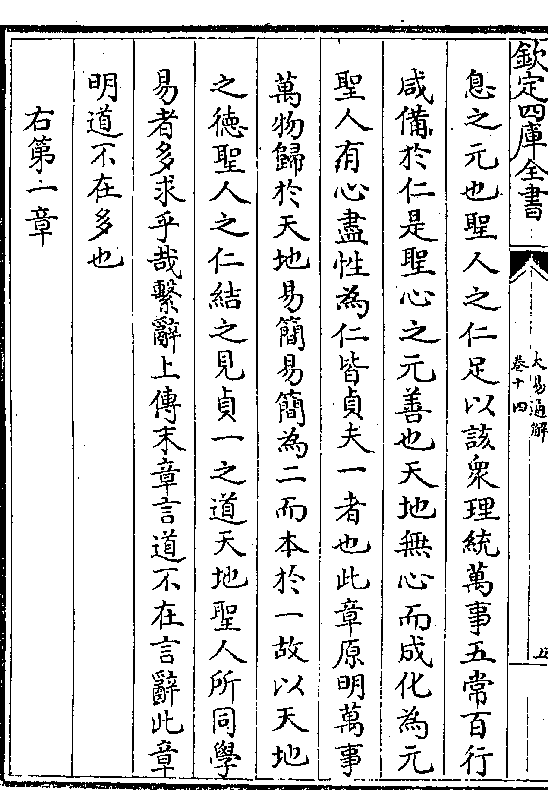 欽定四庫全書
大易通解
卷十四
五
息之元也聖人之仁足以該衆理統萬事五常百行
咸備於仁是聖心之元善也天地無心而成化為元
聖人有心盡性為仁皆貞夫一者也此章原明萬事
萬物歸於天地易簡易簡為二而本於一故以天地
之徳聖人之仁結之見貞一之道天地聖人所同學
易者多求乎哉繫辭上傳末章言道不在言辭此章
明道不在多也
右第一章